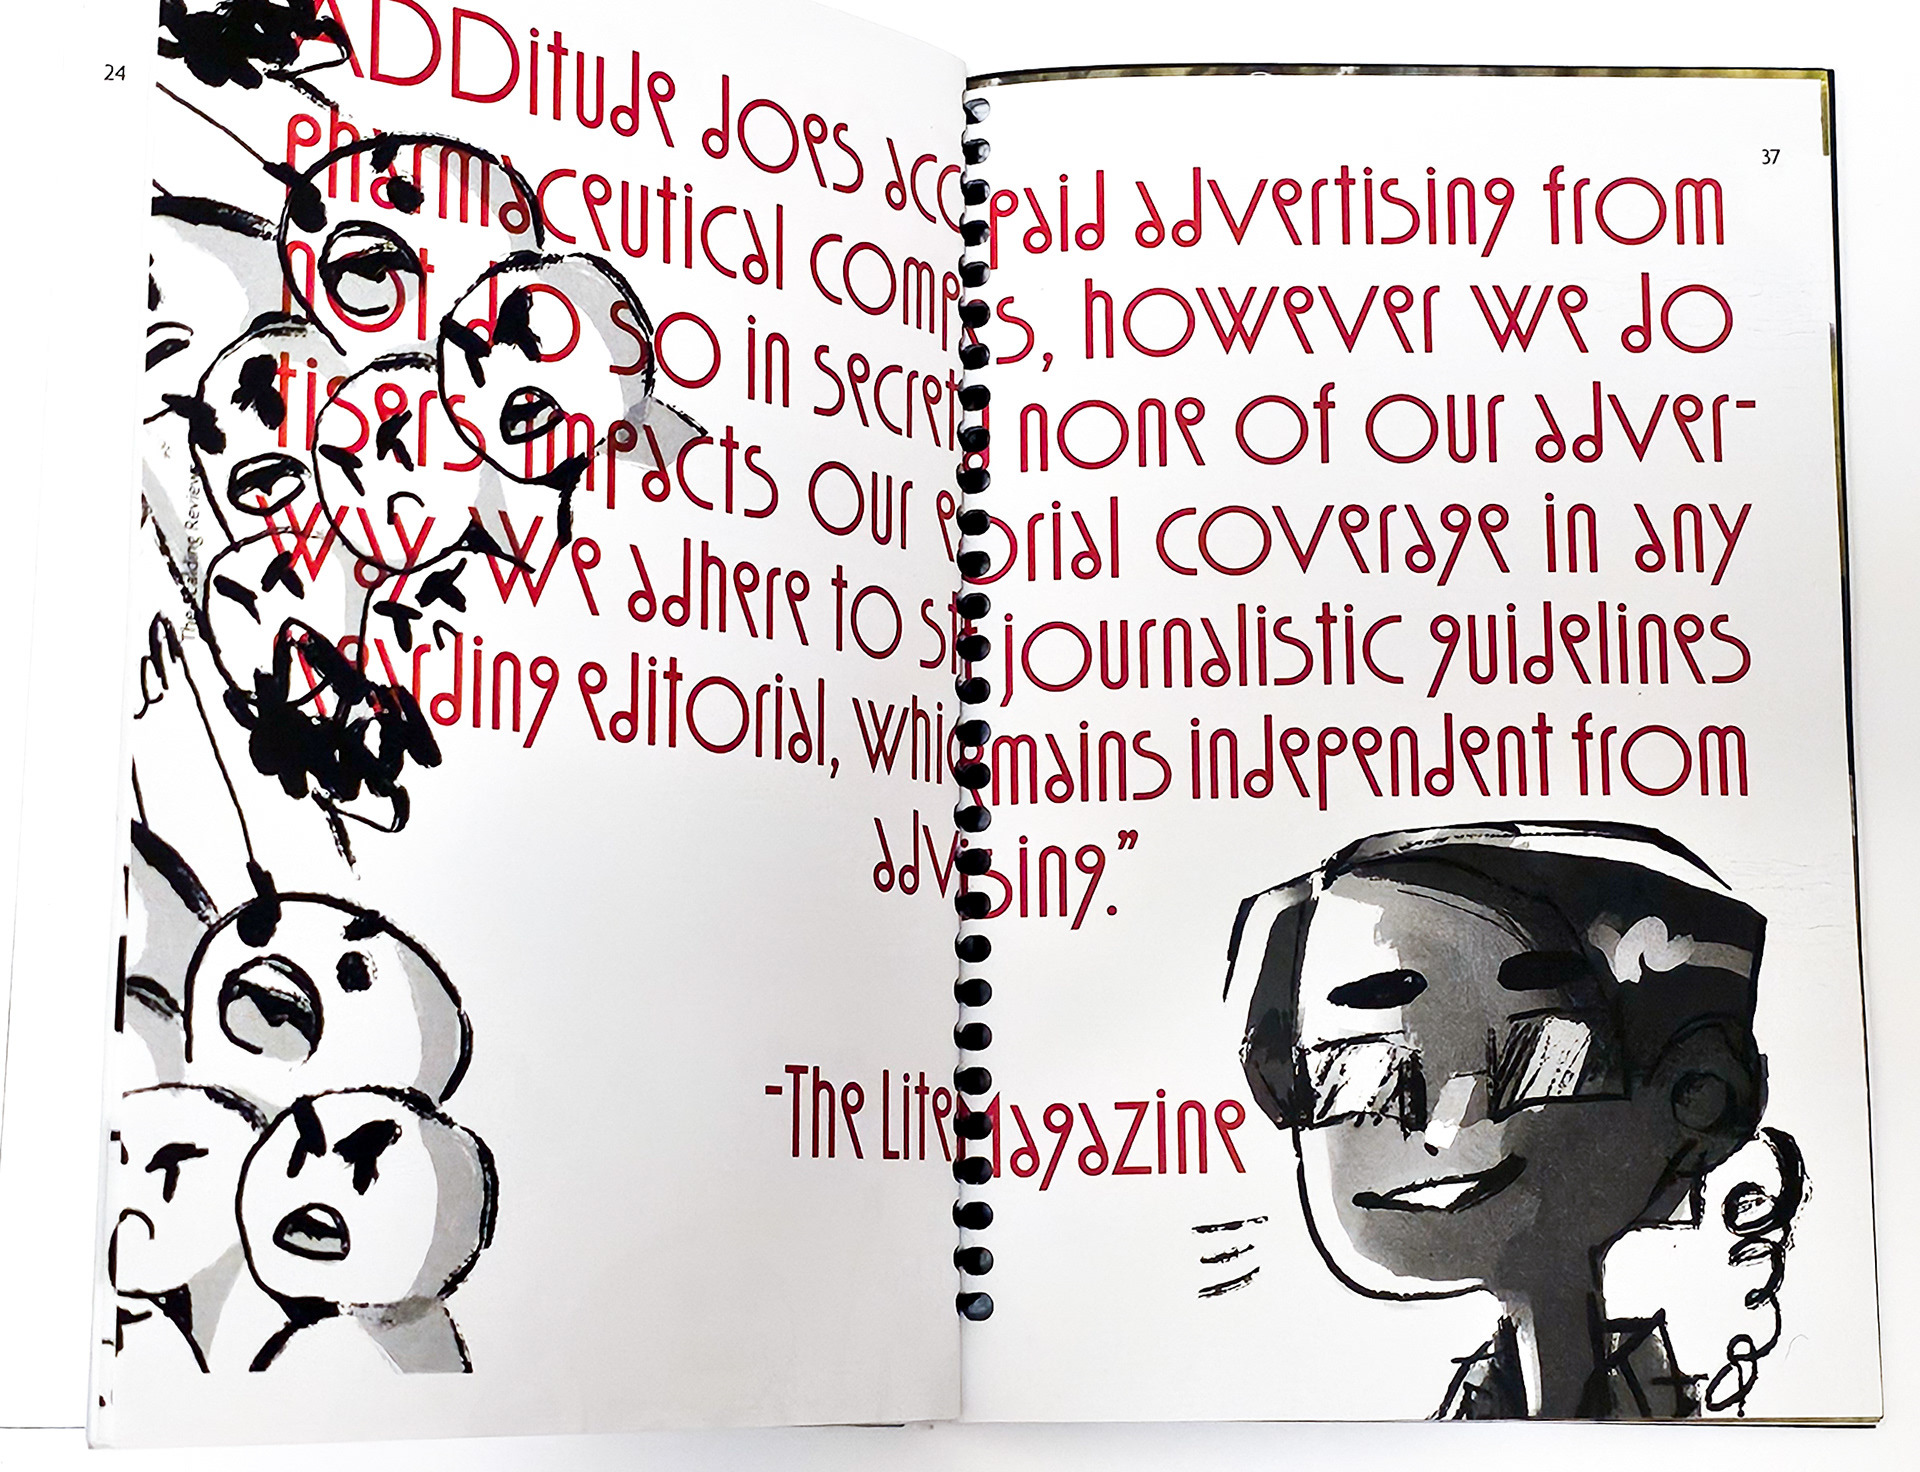 24
37
ADDitude does acc paid advertising from
pharmaceutical comp s, however we do
not do so in secret none of our adver-
tisers impacts our e orial coverage in any
way. We adhere to st journalistic guidelines
regarding editorial, whic mains independent from
adv ising.”
-The Lite Magazine
The Reading Review